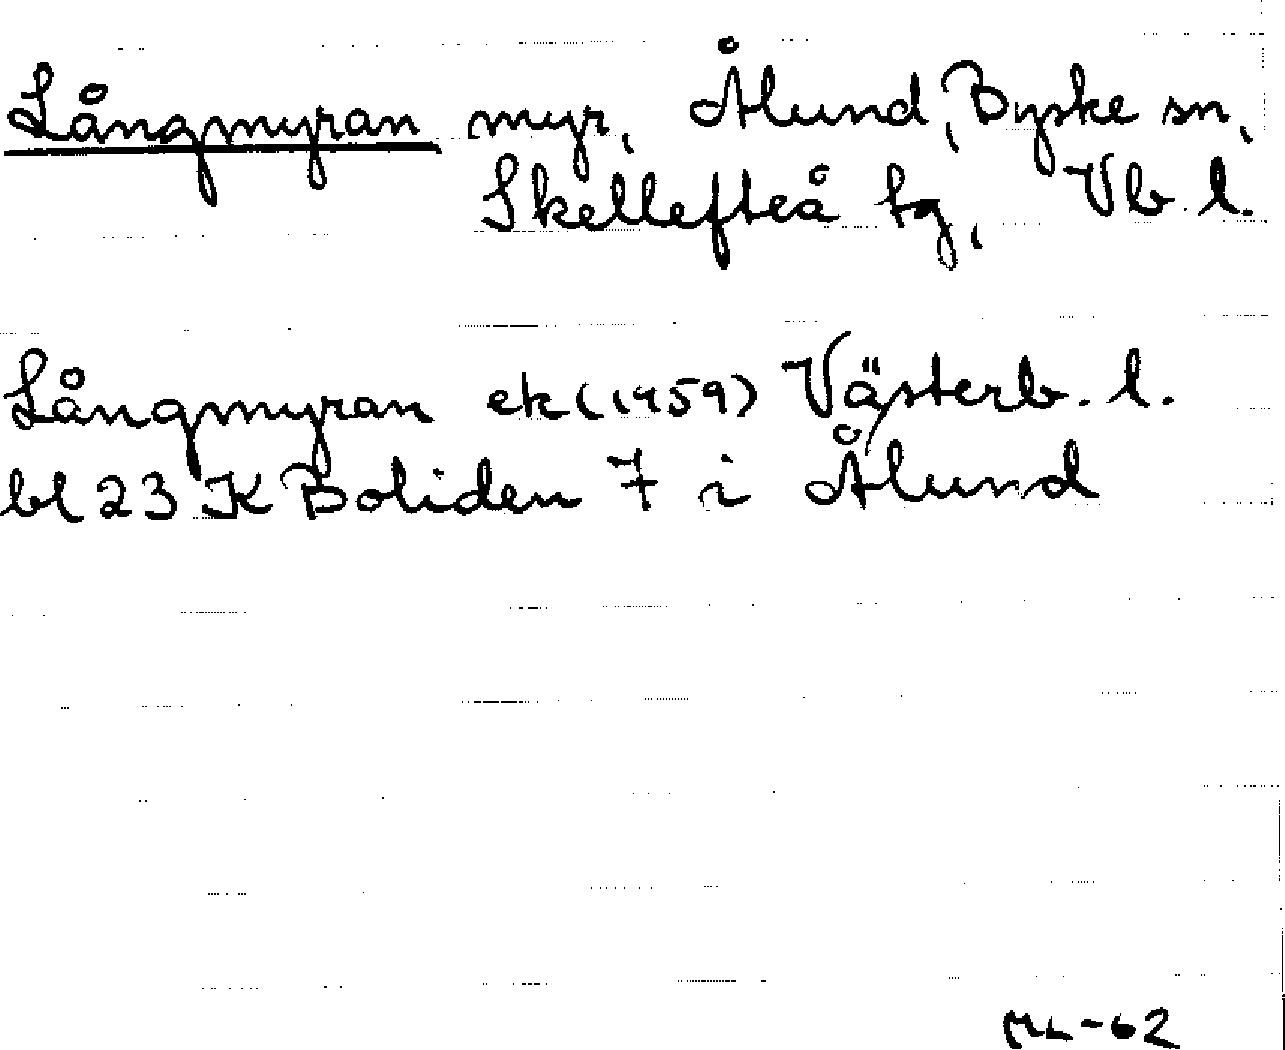 Långmyran myr, Ålund, Byske sn,
Skellefteå tg, Vb. l.
Långmyran ek (1959) Västerb. l.
bl 23 K Boliden 7 i Ålund
ML-62